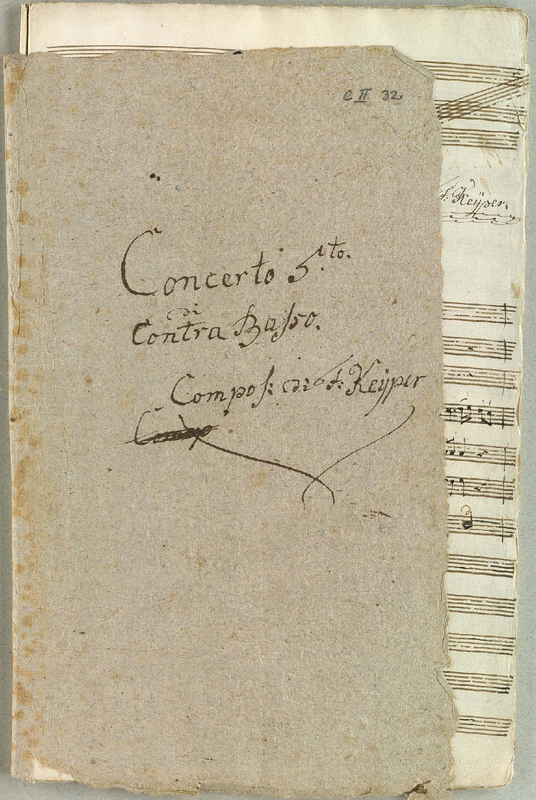 C II 32
Concerto 5.to.
di
Contra Basso.
Compos: di F: Keÿper
Compo
F: Keÿper.